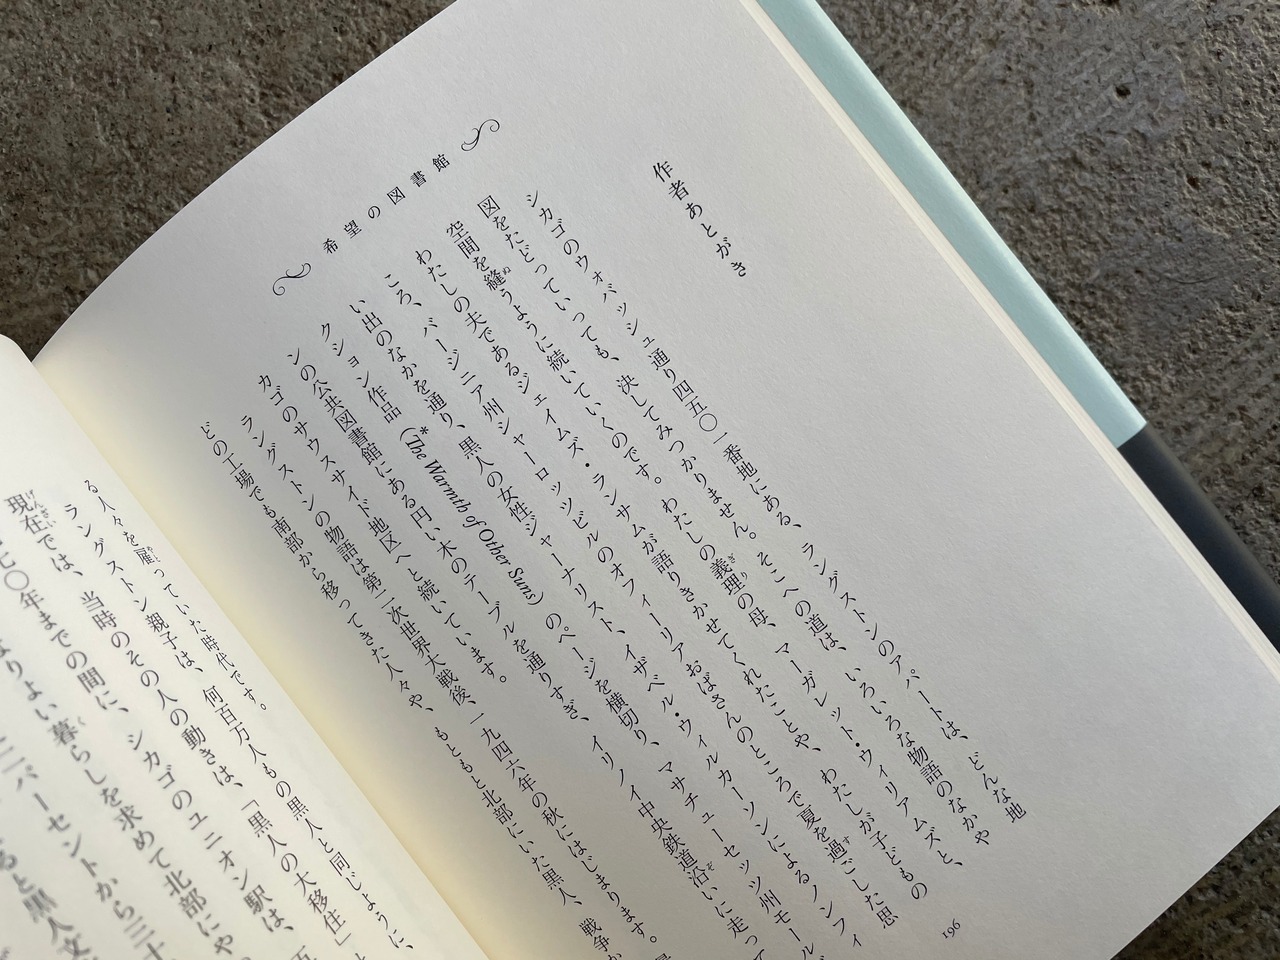 希望の図書館
作者あとがき
シカゴのウォバッシュ通り四五〇一番地にある、ラングストンのアパートは、どんな地
図をたどっていっても、決してみつかりません。そこへの道は、いろいろな物語のなかや
空間を縫うように続いていくのです。わたしの義理の母、マーガレット・ウィリアムズと、
わたしの夫であるジェイムズ・ランサムが語りきかせてくれたことや、わたしが子どもの
ころ、バージニア州シャーロッツビルのオフィーリアおばさんのところで夏を過ごした思
い出のなかを通り、黒人の女性ジャーナリスト、イザベル・ウィルカーソンによるノンフィ
クション作品（*The Warmth of Other Suns）のページを横切り、マサチューセッツ州モール
ンの公共図書館にある円い木のテーブルを通りすぎ、イリノイ中央鉄道沿いに走って
カゴのサウスサイド地区へと続いています。
ラングストンの物語は第二次世界大戦後、一九四六年の秋にはじまります。
どの工場でも南部から移ってきた人々や、もともと北部にいた黒人、戦争か
る人々を雇っていた時代です。
ラングストン親子は、何百万人もの黒人と同じように、
現在では、当時のその人の動きは、「黒人の大移住」
七〇年までの間に、シカゴのユニオン駅は、五
なりよい暮らしを求めて北部にや
二パーセントから三十
ると黒人文
196